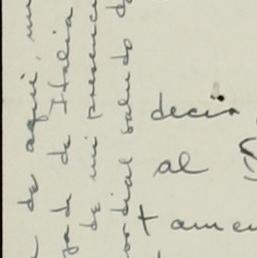 de aquí, un
de Italia
de mi presenci
cordial saludo d
decir
al
+ amen